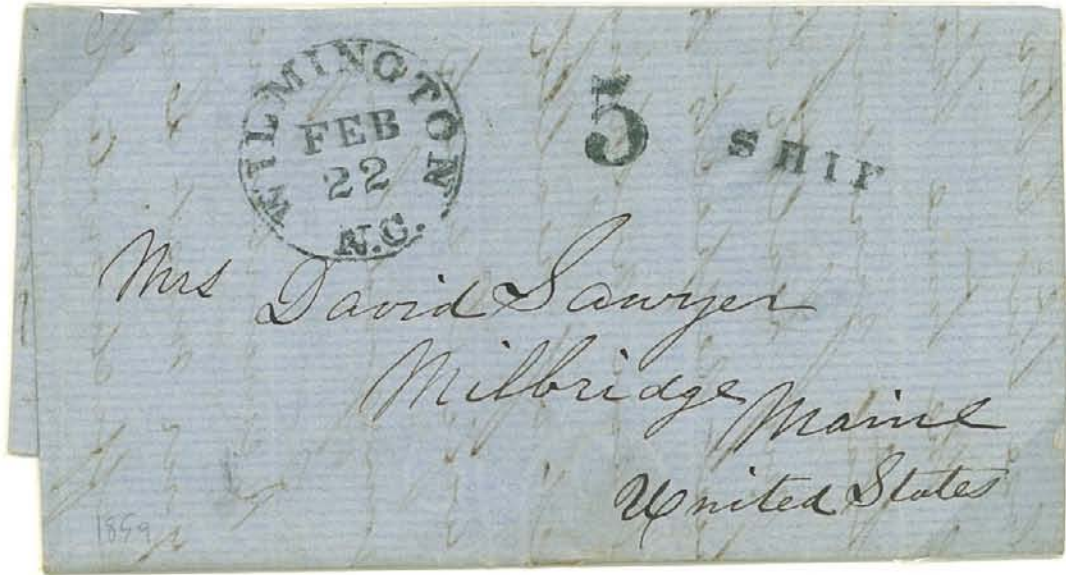 WILMINGTON
FEB
22
N.C.
5 SHIP
Mrs David Sawyer
Milbridge Maine
United States
1859